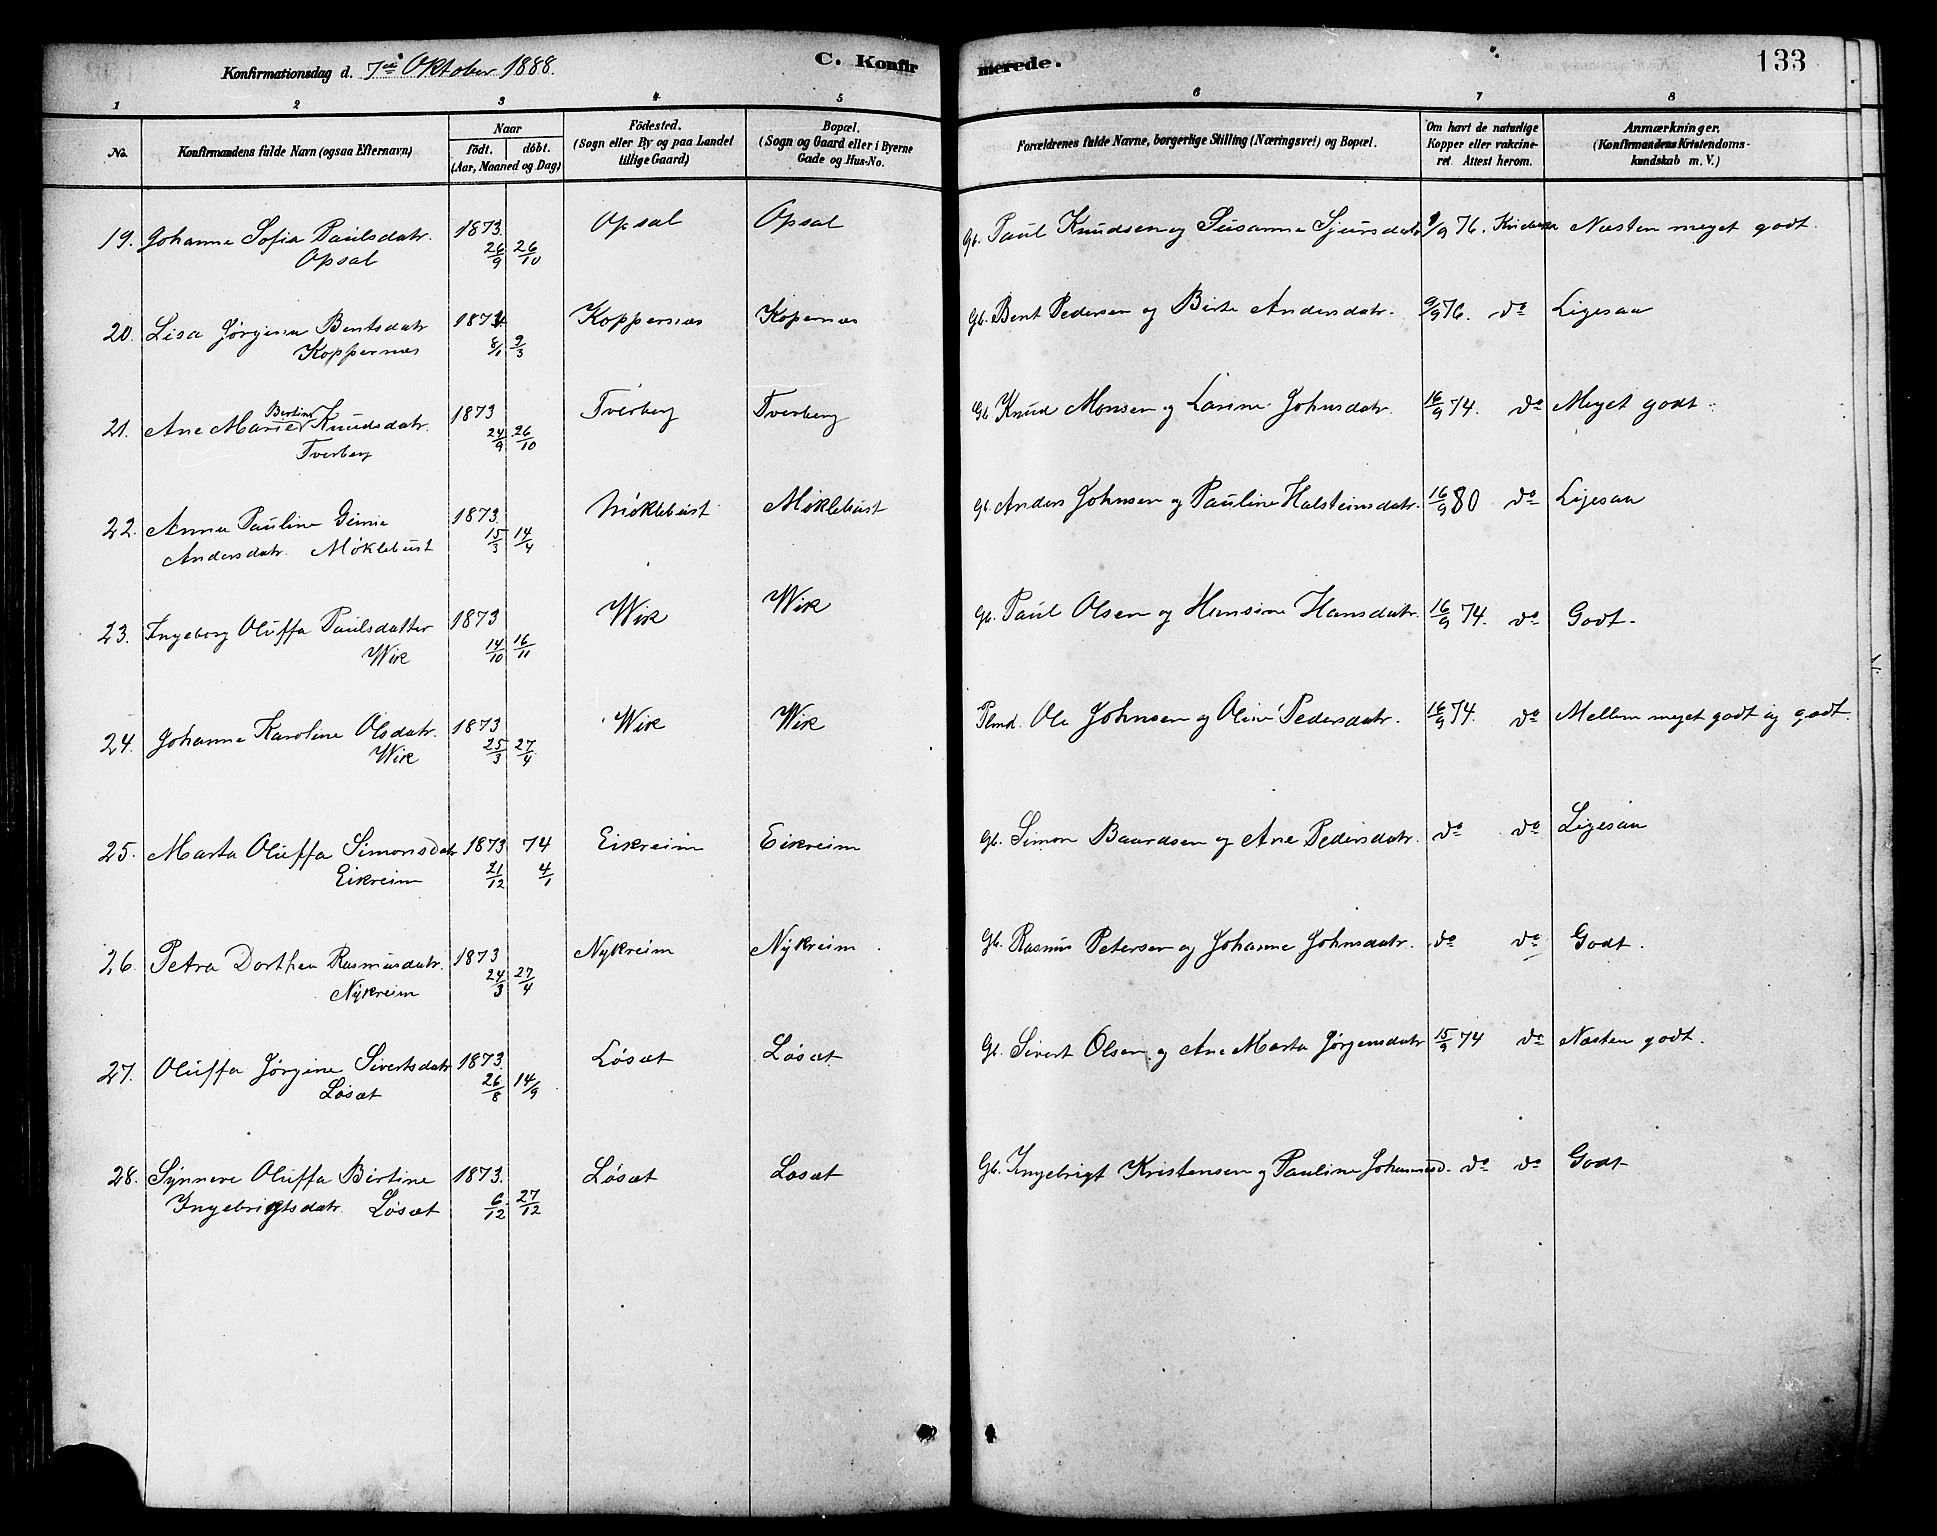 Konfirmationsdag d. 7de Oktober 1888. C. Konfirmerede. 133
1 2 3 4 5 6 7 8
No. Konfirmandens fulde Navn (ogsaa Efternavn) Naar födt. döbt. (Aar, Maaned og Dag) Födested. (Sogn eller By og paa Landet tillige Gaard) Bopæl. (Sogn og Gaard eller i Byerne Gade og Hus-No. Forældrenes fulde Navne, borgerlige Stilling (Næringsvei) og Bopæl. Om havt de naturlige Kopper eller vakcineret. Attest herom. Anmærkninger. (Konfirmandens Kristendomskundskab m. V.)
19. Johanne Sofia Paulsdatr. 1873. Opsal Opsal Gb. Paul Knudsen og Susanne Sjursdatr 9/9 76. Næsten meget godt.
Opsal 26/9 26/10
20. Lisa Jørgina Bentsdatr 1874 Koppernæs Kopernæs Gb. Bent Pedersen og Birte Andersdatr. 9/9 76. do Ligesaa
Koppernæs 8/1 9/3
21. Ane Marie Bertine Knudsdatr. 1873 Tverberg Tverberg Gb. Knud Monsen og Larine Johnsdatr. 16/9 74. do Meget godt.
Tverberg 24/9 26/10
22. Anna Pauline Gimie 1873. Møklebust Møklebust Gb. Anders Johnsen og Pauline Halsteinsdatr. 16/9 80 do Ligesaa
Andersdatr. Møklebust 15/3 14/4
23. Ingeborg Oluffa Paulsdatter 1873 Wik Wik Gb. Paul Olsen og Hansine Hansdatr. 16/9 74. do Godt.
Wik 14/10 16/11
24. Johanne Karoline Olsdatr. 1873 Wik Wik Plmd. Ole Johnsen og Oline Pedersdatr. 16/9 74. do Mellem meget godt og godt.
Wik 25/3 27/4
25. Marta Oluffa Simonsdatr 1873 74 Eikreim Eikreim Gb. Simon Baardsen og Ane Pedersdatr. do do Ligesaa
Eikreim 21/12 4/1
26. Petra Dorthea Rasmusdatr. 1873 Nykreim Nykreim Gb. Rasmus Petersen og Johanne Johnsdatr. do do Godt.
Nykreim 24/3 27/4
27. Oluffa Jørgine Sivertsdatr 1873. Løsæt Løsæt Gb. Sivert Olsen og Ane Marta Jørgensdatr 15/9 74 do Næsten godt.
Løsæt 26/8 14/9
28. Synneve Oluffa Birtine 1873. Løsæt Løsæt Gb. Ingebrigt Kristensen og Pauline Johannesd. do do Godt
Ingebrigtsdatr. Løsæt 6/12 27/12